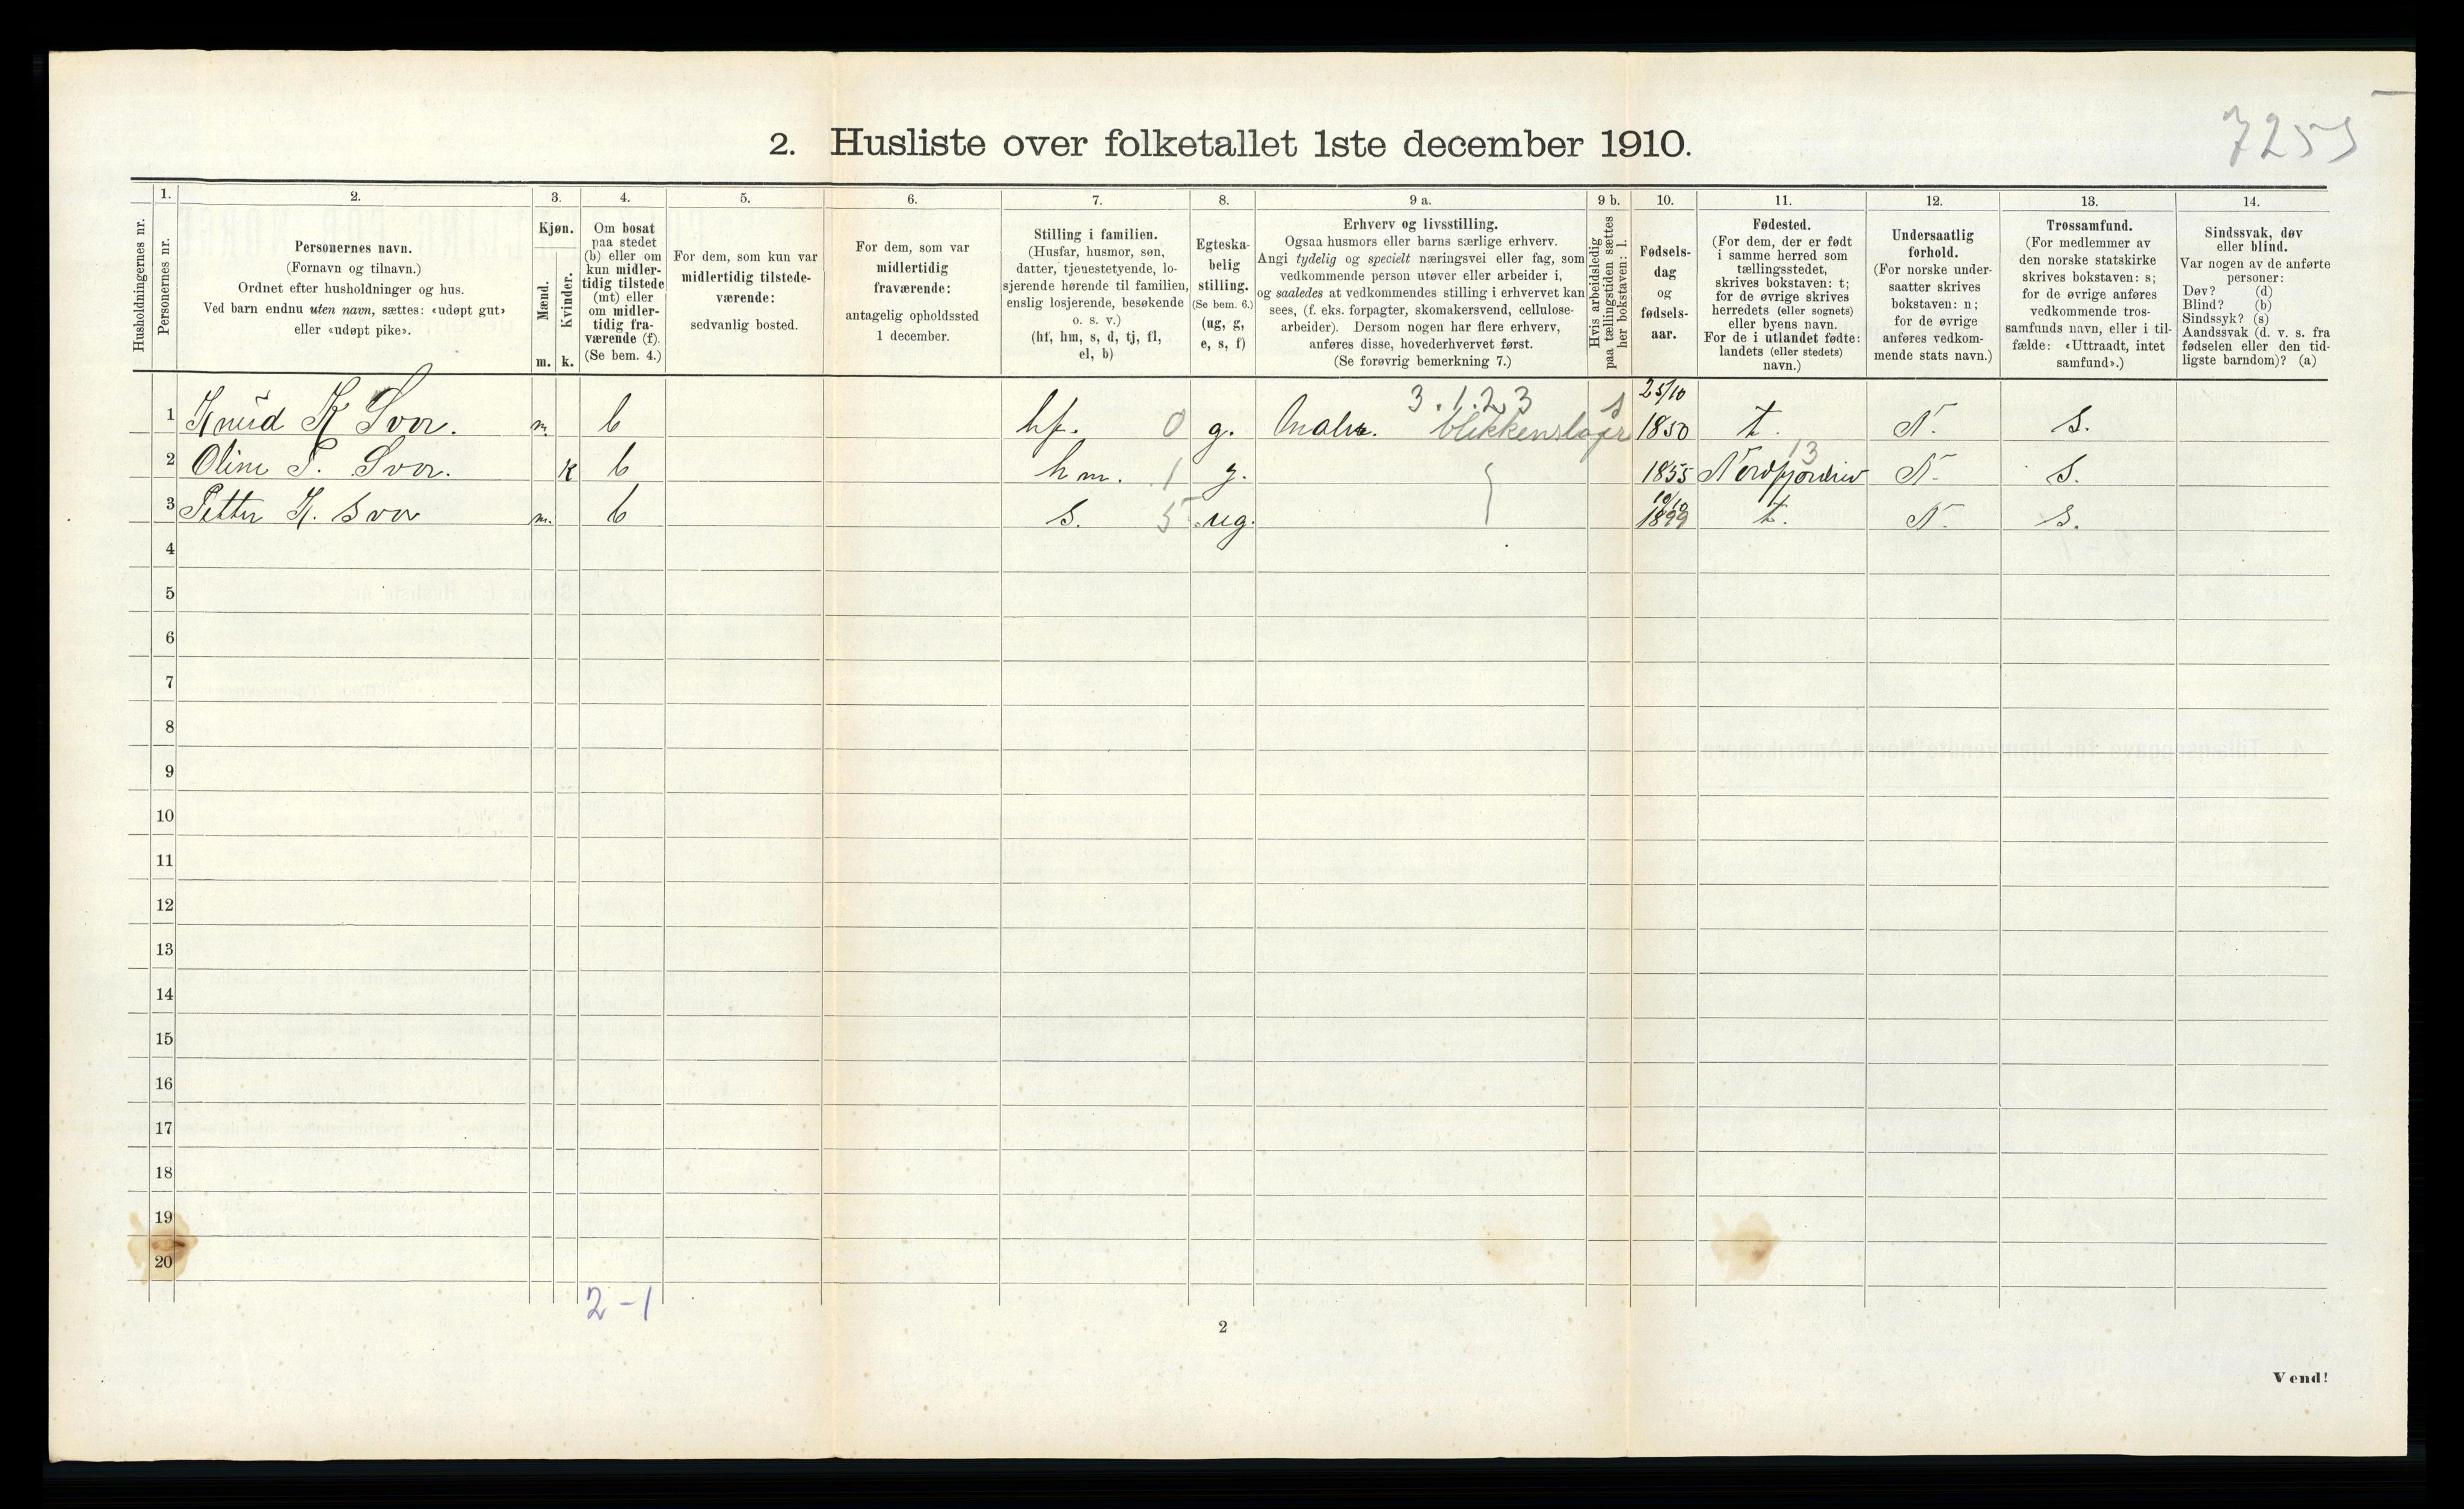 7255
2. Husliste over folketallet 1ste december 1910.
Husholdningernes nr.
1.
Personernes nr.
2.
Personernes navn.
(Fornavn og tilnavn.)
Ordnet efter husholdninger og hus.
Ved barn endnu uten navn, sættes: «udøpt gut»
eller «udøpt pike».
3.
Kjøn.
Mænd.
m.
Kvinder.
k.
4.
Om bosat
paa stedet
(b) eller om
kun midler-
tidig tilstede
(mt) eller
om midler-
tidig fra-
værende (f).
(Se bem. 4.)
5.
For dem, som kun var
midlertidig tilstede-
værende:
sedvanlig bosted.
6.
For dem, som var
midlertidig
fraværende:
antagelig opholdssted
1 december.
7.
Stilling i familien.
(Husfar, husmor, søn,
datter, tjenestetyende, lo-
sjerende hørende til familien,
enslig losjerende, besøkende
o. s. v.)
(hf, hm, s, d, tj, fl,
el, b)
8.
Egteska-
belig
stilling.
(Se bem. 6.)
(ug, g,
e, s, f)
9 a.
Erhverv og livsstilling.
Ogsaa husmors eller barns særlige erhverv.
Angi tydelig og specielt næringsvei eller fag, som
vedkommende person utøver eller arbeider i,
og saaledes at vedkommendes stilling i erhvervet kan
sees, (f. eks. forpagter, skomakersvend, cellulose-
arbeider). Dersom nogen har flere erhverv,
anføres disse, hovederhvervet først.
(Se forøvrig bemerkning 7.)
9 b.
Hvis arbeidsledig
paa tællingstiden sættes
her bokstaven: l.
10.
Fødsels-
dag
og
fødsels-
aar.
11.
Fødested.
(For dem, der er født
i samme herred som
tællingsstedet,
skrives bokstaven: t;
for de øvrige skrives
herredets (eller sognets)
eller byens navn.
For de i utlandet fødte:
landets (eller stedets)
navn.)
12.
Undersaatlig
forhold.
(For norske under-
saatter skrives
bokstaven: n;
for de øvrige
anføres vedkom-
mende stats navn.)
13.
Trossamfund.
(For medlemmer av
den norske statskirke
skrives bokstaven: s;
for de øvrige anføres
vedkommende tros-
samfunds navn, eller i til-
fælde: «Uttraadt, intet
samfund».)
14.
Sindssvak, døv
eller blind.
Var nogen av de anførte
personer:
Døv? (d)
Blind? (b)
Sindssyk? (s)
Aandssvak (d. v. s. fra
fødselen eller den tid-
ligste barndom)? (a)
3.1.2.3 s 25/10
1 Knud K Svor. m. b hf. 0 g. Maler. blikkenslager 1850 t. N. S.
13
2 Oline P. Svor. k b hm. 1 g. 1855 Nordfjordeid N. S.
10/10
3 Petter K. Svor m. b s. 5 ug. 1899 t. N. S.
4
5
6
7
8
9
10
11
12
13
14
15
16
17
18
19
20
2-1
2
Vend!